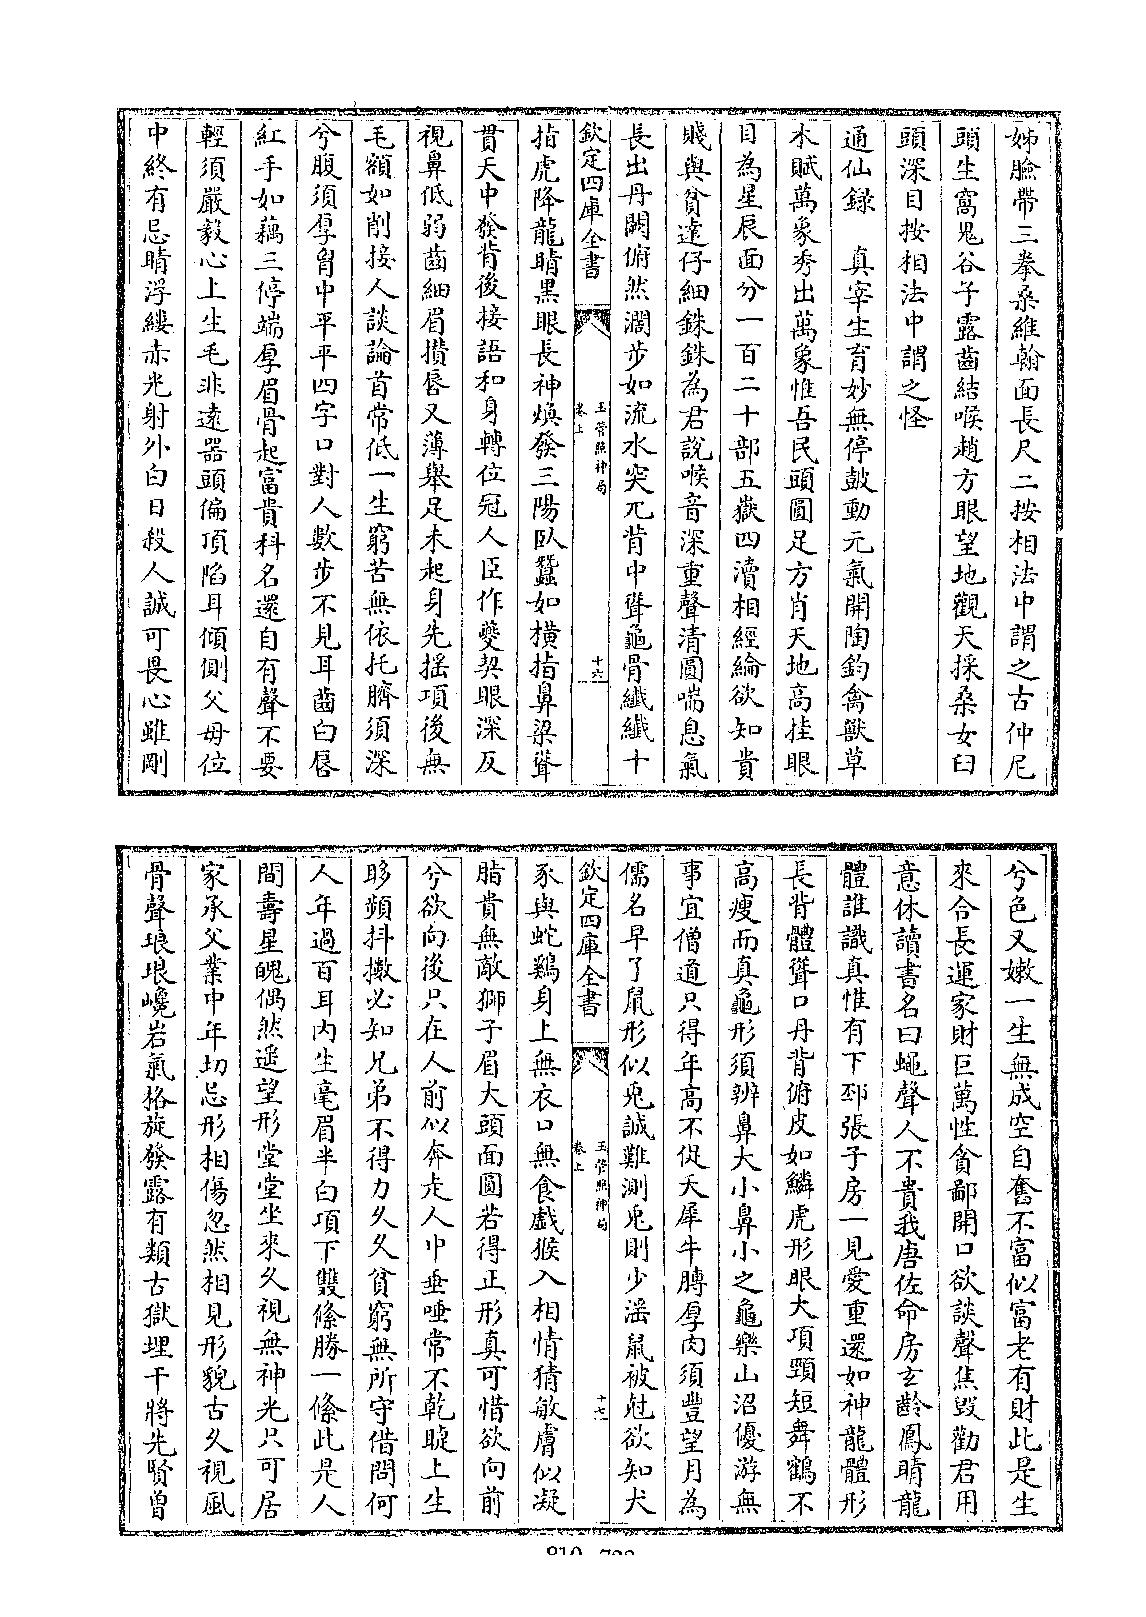 姊臉帶三拳桑維翰面長尺二按相法中謂之古仲尼
頭生窩鬼谷子露齒結喉趙方眼望地觀天採桑女臼
頭深目按相法中謂之怪
通仙錄　真宰生育妙無停鼓動元氣開陶鈞禽獸草
木賦萬象秀出萬象惟吾民頭圓足方肖天地高挂眼
目為星辰面分一百二十部五嶽四瀆相經綸欲知貴
賤與貧達仔細銖銖為君說喉音深重聲清圓喘息氣
長出丹闕俯然濶步如流水突兀背中聳龜骨纖纖十
欽定四庫全書
玉管照神局
卷上
十六
指虎降龍睛黑眼長神煥發三陽臥蠶如橫指鼻梁聳
貫天中發背後接語和身轉位冠人臣作夔契眼深反
視鼻低弱齒細眉攢唇又薄舉足未起身先搖項後無
毛額如削接人談論首常低一生窮苦無依托臍須深
兮腹須厚胷中平平四字口對人數步不見耳齒白唇
紅手如藕三停端厚眉骨起富貴科名還自有聲不要
輕須嚴毅心上生毛非遠器頭偏項陷耳傾側父母位
中終有忌睛浮縷赤光射外白日殺人誠可畏心雖剛
兮色又嫩一生無成空自奮不富似富老有財此是生
來合長運家財巨萬性貪鄙開口欲談聲焦毀勸君用
意休讀書名曰蠅聲人不貴我唐佐命房玄齡鳳睛龍
體誰識真惟有下邳張子房一見愛重還如神龍體形
長背體聳口丹背俯皮如鱗虎形眼大項頸短舞鶴不
高瘦而真龜形須辨鼻大小鼻小之龜樂山沼優游無
事宜僧道只得年高不促夭犀牛膊厚肉須豐望月為
儒名早了鼠形似兎誠難測兎則少滛鼠被尅欲知犬
欽定四庫全書
玉管照神局
卷上
十七
豕與蛇鷄身上無衣口無食戲猴入相情猜敏膚似凝
脂貴無敵獅子眉大頭面圓若得正形真可惜欲向前
兮欲向後只在人前似奔走人中垂唾常不乾睫上生
眵頻抖擻必知兄弟不得力久久貧窮無所守借問何
人年過百耳內生毫眉半白項下雙絛勝一絛此是人
間壽星魄偶然遥望形堂堂坐來久視無神光只可居
家承父業中年切忌形相傷忽然相見形貌古久視風
骨聲琅琅巉岩氣格旋發露有類古獄埋干將先賢曾